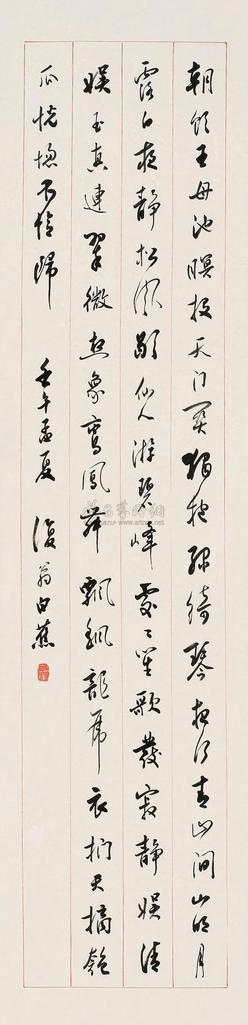 朝饮王母池暝投天门关独抱绿绮琴夜行青山间山明月
露白夜静松风歇仙人游碧峰处处笙歌发寂静娱清
娱玉真连翠微想象鸾凤舞飘飖龙虎衣扪天摘匏
瓜恍惚不忆归 壬午孟夏 复翁白蕉